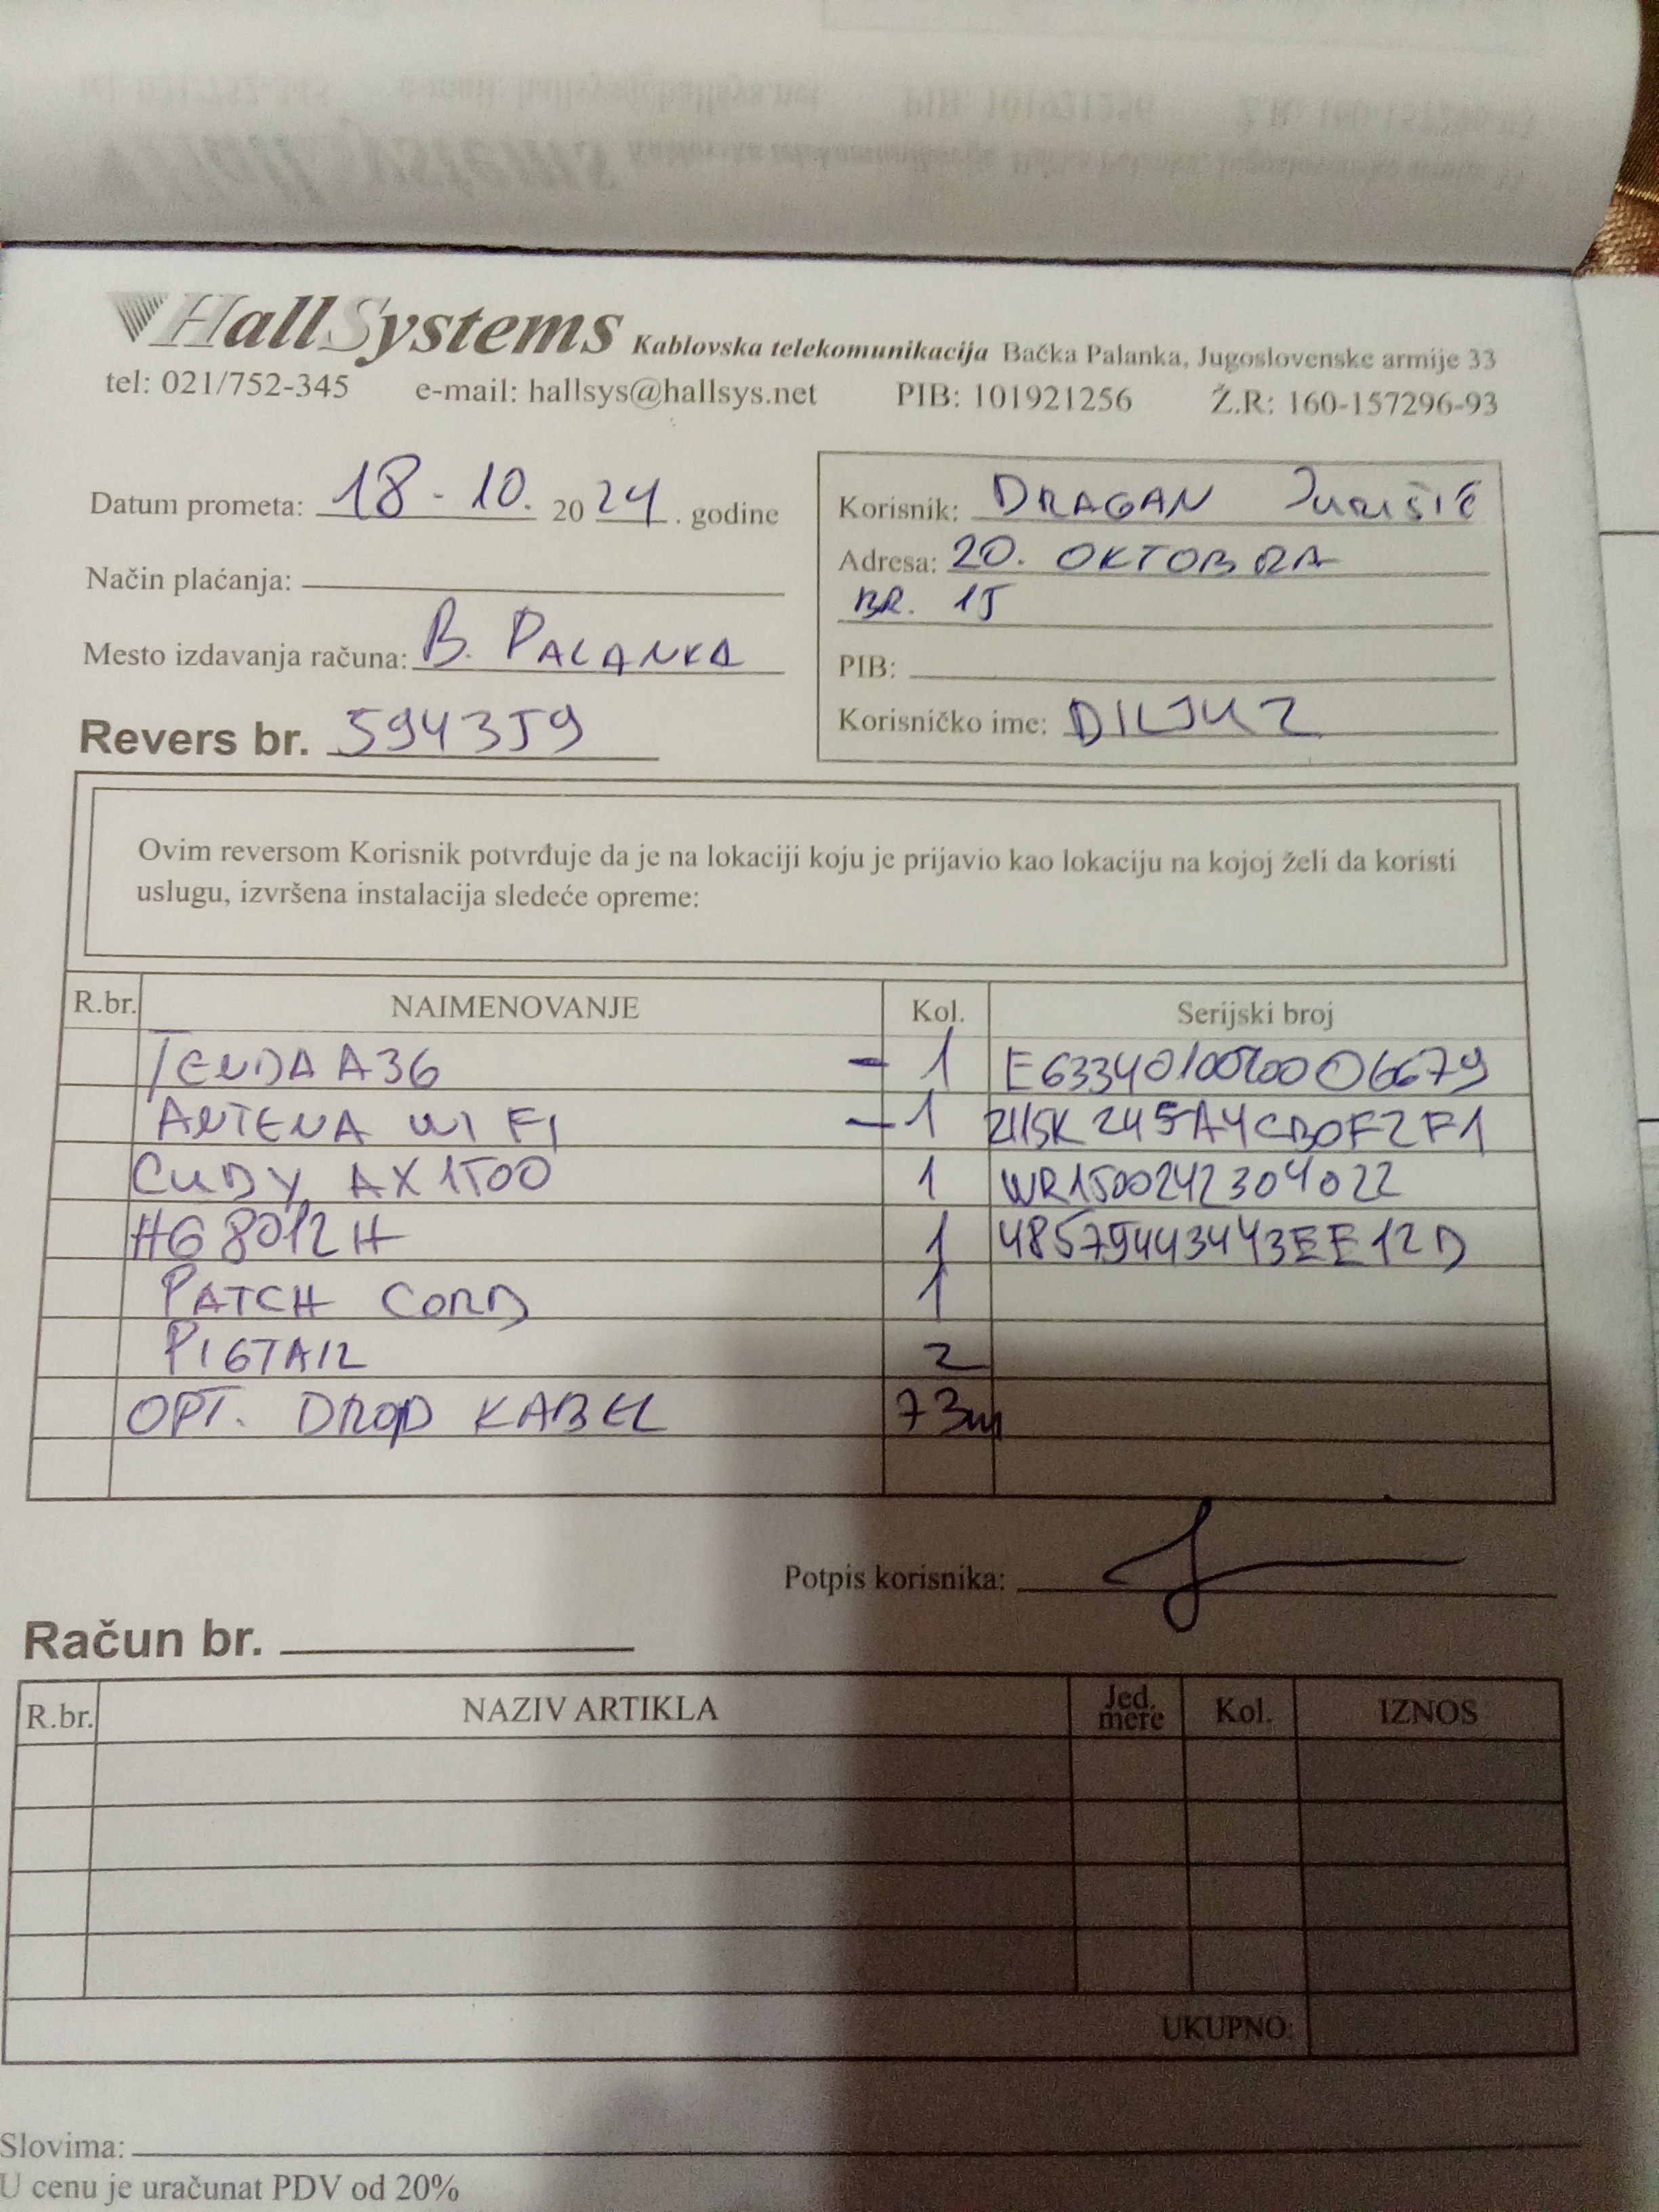 HallSystems Kablovska telekomunikacija Bačka Palanka, Jugoslovenske armije 33
tel: 021/752-345 e-mail: hallsys@hallsys.net PIB: 101921256 Ž.R: 160-157296-93
Datum prometa: 18-10. 2024. godine
Način plaćanja:
Mesto izdavanja računa: B. PALANKA
Revers br. 594359
Korisnik: DRAGAN Jurišić
Adresa: 20. OKTOBRA
BR. 15
PIB:
Korisničko ime:
Ovim reversom Korisnik potvrđuje da je na lokaciji koju je prijavio kao lokaciju na kojoj želi da koristi
uslugu, izvršena instalacija sledeće opreme:
R.br. NAIMENOVANJE Kol. Serijski broj
TENDA A36 - 1
ANTENA WI FI - 1
CUDY AX1500 1 WR1500242304022
HG8012H 1 48579443443EE12D
PATCH CORD 1
PIGTAIL 2
OPT. DROP KABEL 73m
Potpis korisnika:
Račun br.
R.br. NAZIV ARTIKLA Jed. mere Kol. IZNOS
UKUPNO:
Slovima:
U cenu je uračunat PDV od 20%